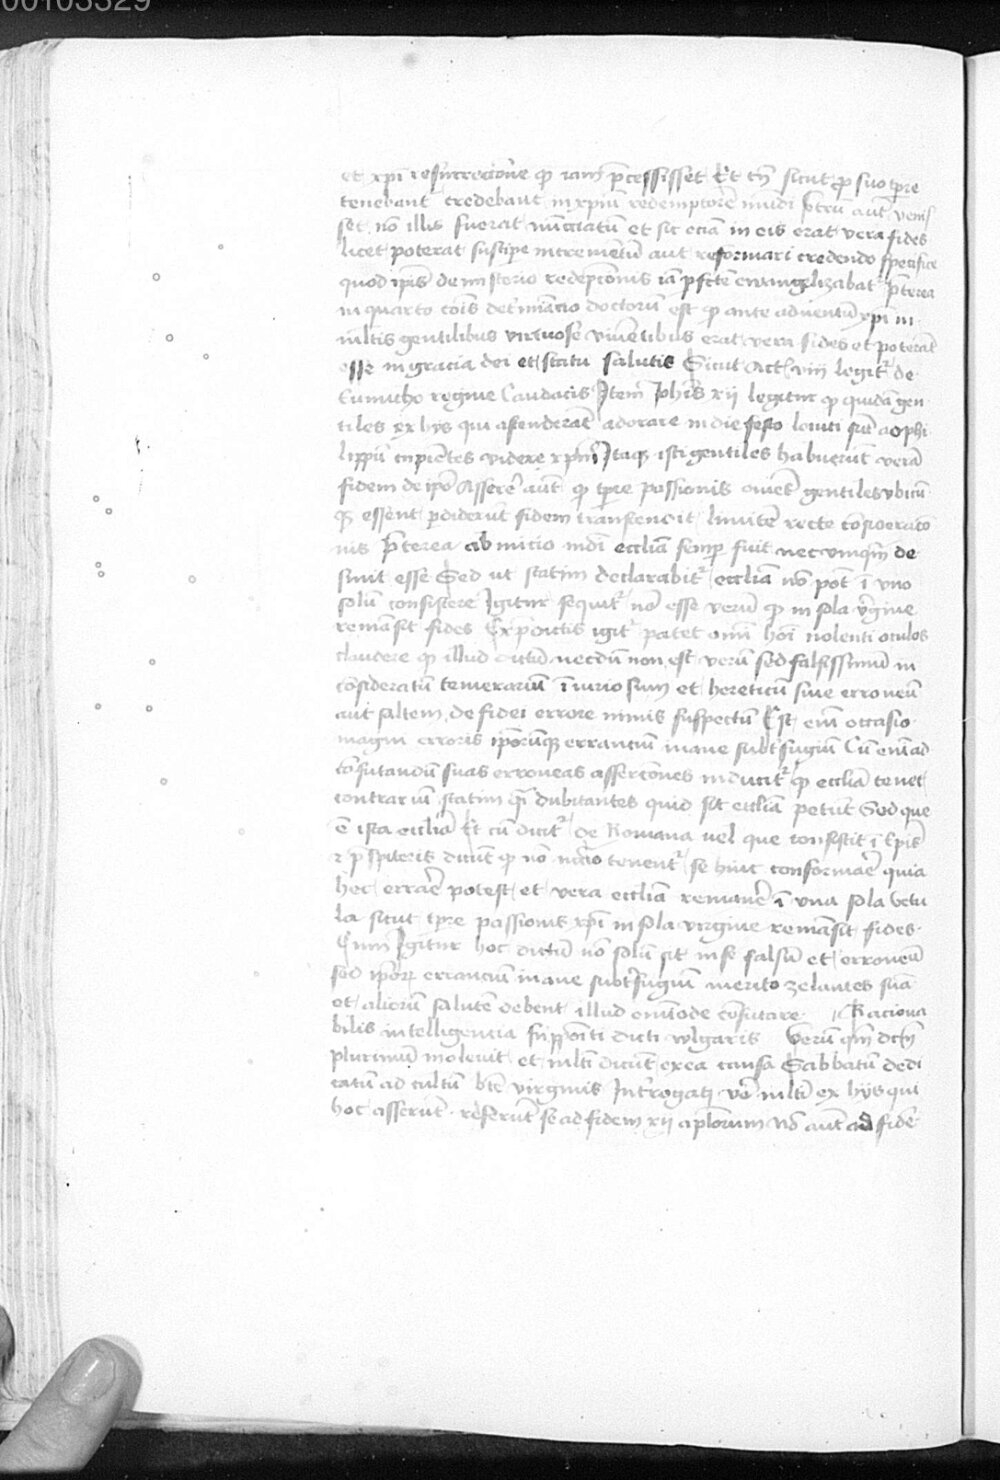 00103329
et xp̄i resurrectiōne q̄ iam p̄cessisset Et tn̄ sicut p̄ suo tp̄re
tenebant credebant in xp̄m redemptorē mūdi vētur̄ aut venis
set nō illis fuerat nūcciatū et sic eciā in eis erat vera fides
licet poterat suscipe incremētū aut reformari credendo specifice
quod ip̄is de misterio redēpcōnis iā p̄fc̄te ewangelizabat᷑ p̄terea
in quarto cōis det᷑minacio doctorū est q̄ ante adventū xp̄i in
ml̄tis gentilibus virtuose vivētibus erat vera fides et poterāt
esse in gracia dei et statu salutis Sicut Act᷑ viij legit᷑ de
Eunucho regine Candacis Item Joh̄is xij legitur q̄ quidā gen
tiles ex hys qui ascenderāt adorare in die festo locuti sūt ad phi
lippū cupiētes videre xp̄m Itaq̄ isti gentiles habuerūt verā
fidem de ip̄o Asserē aūt q̄ tp̄re passionis om̄es gentiles vbicū
q̄ essent p̄diderūt fidem transcendit limitē recte cōsideracō
nis P̄terea ab inicio mūdi eccliā semp̄ fuit nec vnq̄m de
sinit esse Sed ut statim declarabit᷑ eccliā nō pōt ī vno
solū consistere Igitur sequit᷑ nō esse verū q̄ in sola v̄gine
remāsit fides Ex p̄dictis igit᷑ patet om̄i hoī nolenti oculos
claudere q̄ illud dictū necdū non est verū sed falsissimū in
cōsideratū temerariū īniuriosum et hereticū sive erroneū
aut saltem de fidei errore nimis suspectū Est em̄ occasio
magni erroris ip̄orūq̄ errantiū inane subt᷑fugiū Cū em̄ ad
cōfutandū suas erroneas assercōnes inducit᷑ q̄ eccliā tenet
contrariū statim q̄i dubitantes quid sit eccliā petūt Sed que
ē ista eccliā Et cū dicit᷑ de Romana vel que consistit ī ep̄is
et p̄sbiteris dicūt q̄ nō tenent᷑ se huic conformāe quia
hec errāe potest et vera eccliā remanē ī vna sola vetu
la sicut tp̄re passionis xp̄i in sola virgine remāsit fides
Cum Igitur hoc dictū nō solū sit in se falsū et erroneū
sed ip̄or̄ errantiū inane subt᷑fugiū merito zelantes suā
et aliorū salutē debent illud om̄īode cōfutare Raciona
bilis intelligentia sup̄pōiti dicti vulgaris Verū qm̄ dc̄m
plurimū inolevit et ml̄ti dicūt ex ea causa Sabbatū dedi
catū ad cultū bt̄e virginis Int᷑rogati vō ml̄ti ex hys qui
hoc asserūt referūt se ad fidem xij ap̄lorum aūt ad fidē